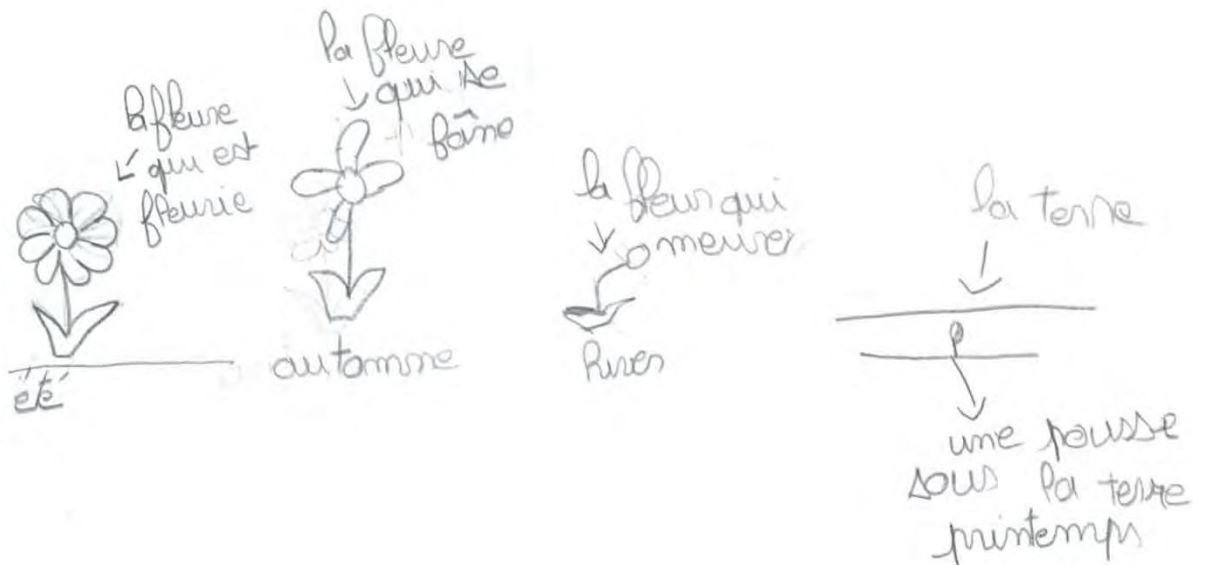 la fleure
qui est
fleurie
été
la fleure
qui se
fâne
automne
la fleur qui
meure
hiver
la terre
une pousse
sous la terre
printemps